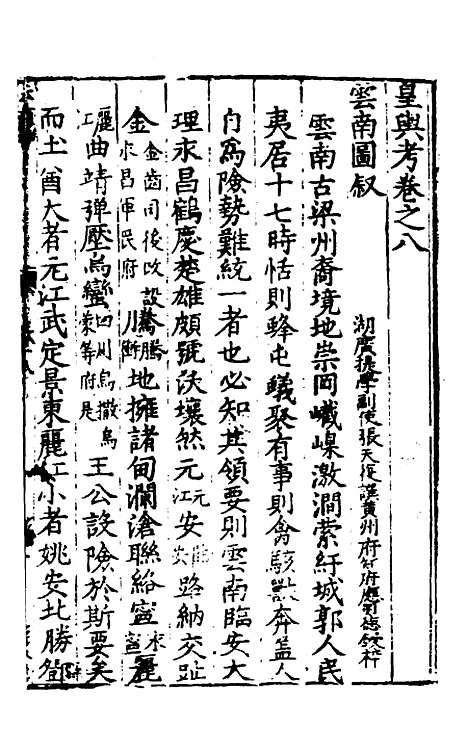 皇輿考卷之八
雲南圖叙
湖廣提學副使張天復譔黄州府知府應可德鋟梓
雲南古梁州裔境地崇岡巇㠔激澗縈紆城郭人民
夷居十七時恬則蜂屯蟻聚有事則禽駭獸奔蓋人
自為險勢難統一者也必知其領要則雲南臨安大
理永昌鶴慶楚雄頗號沃壤然元江元安路納交趾
金金齒司後改設永昌軍民府騰騰衝地擁諸甸瀾滄聯絡永寧麗麗江
曲靖彈壓烏蠻四川烏撒烏蒙等府是王公設險於斯要矣
而土酋大者元江武定景東麗江小者姚安北勝鄧